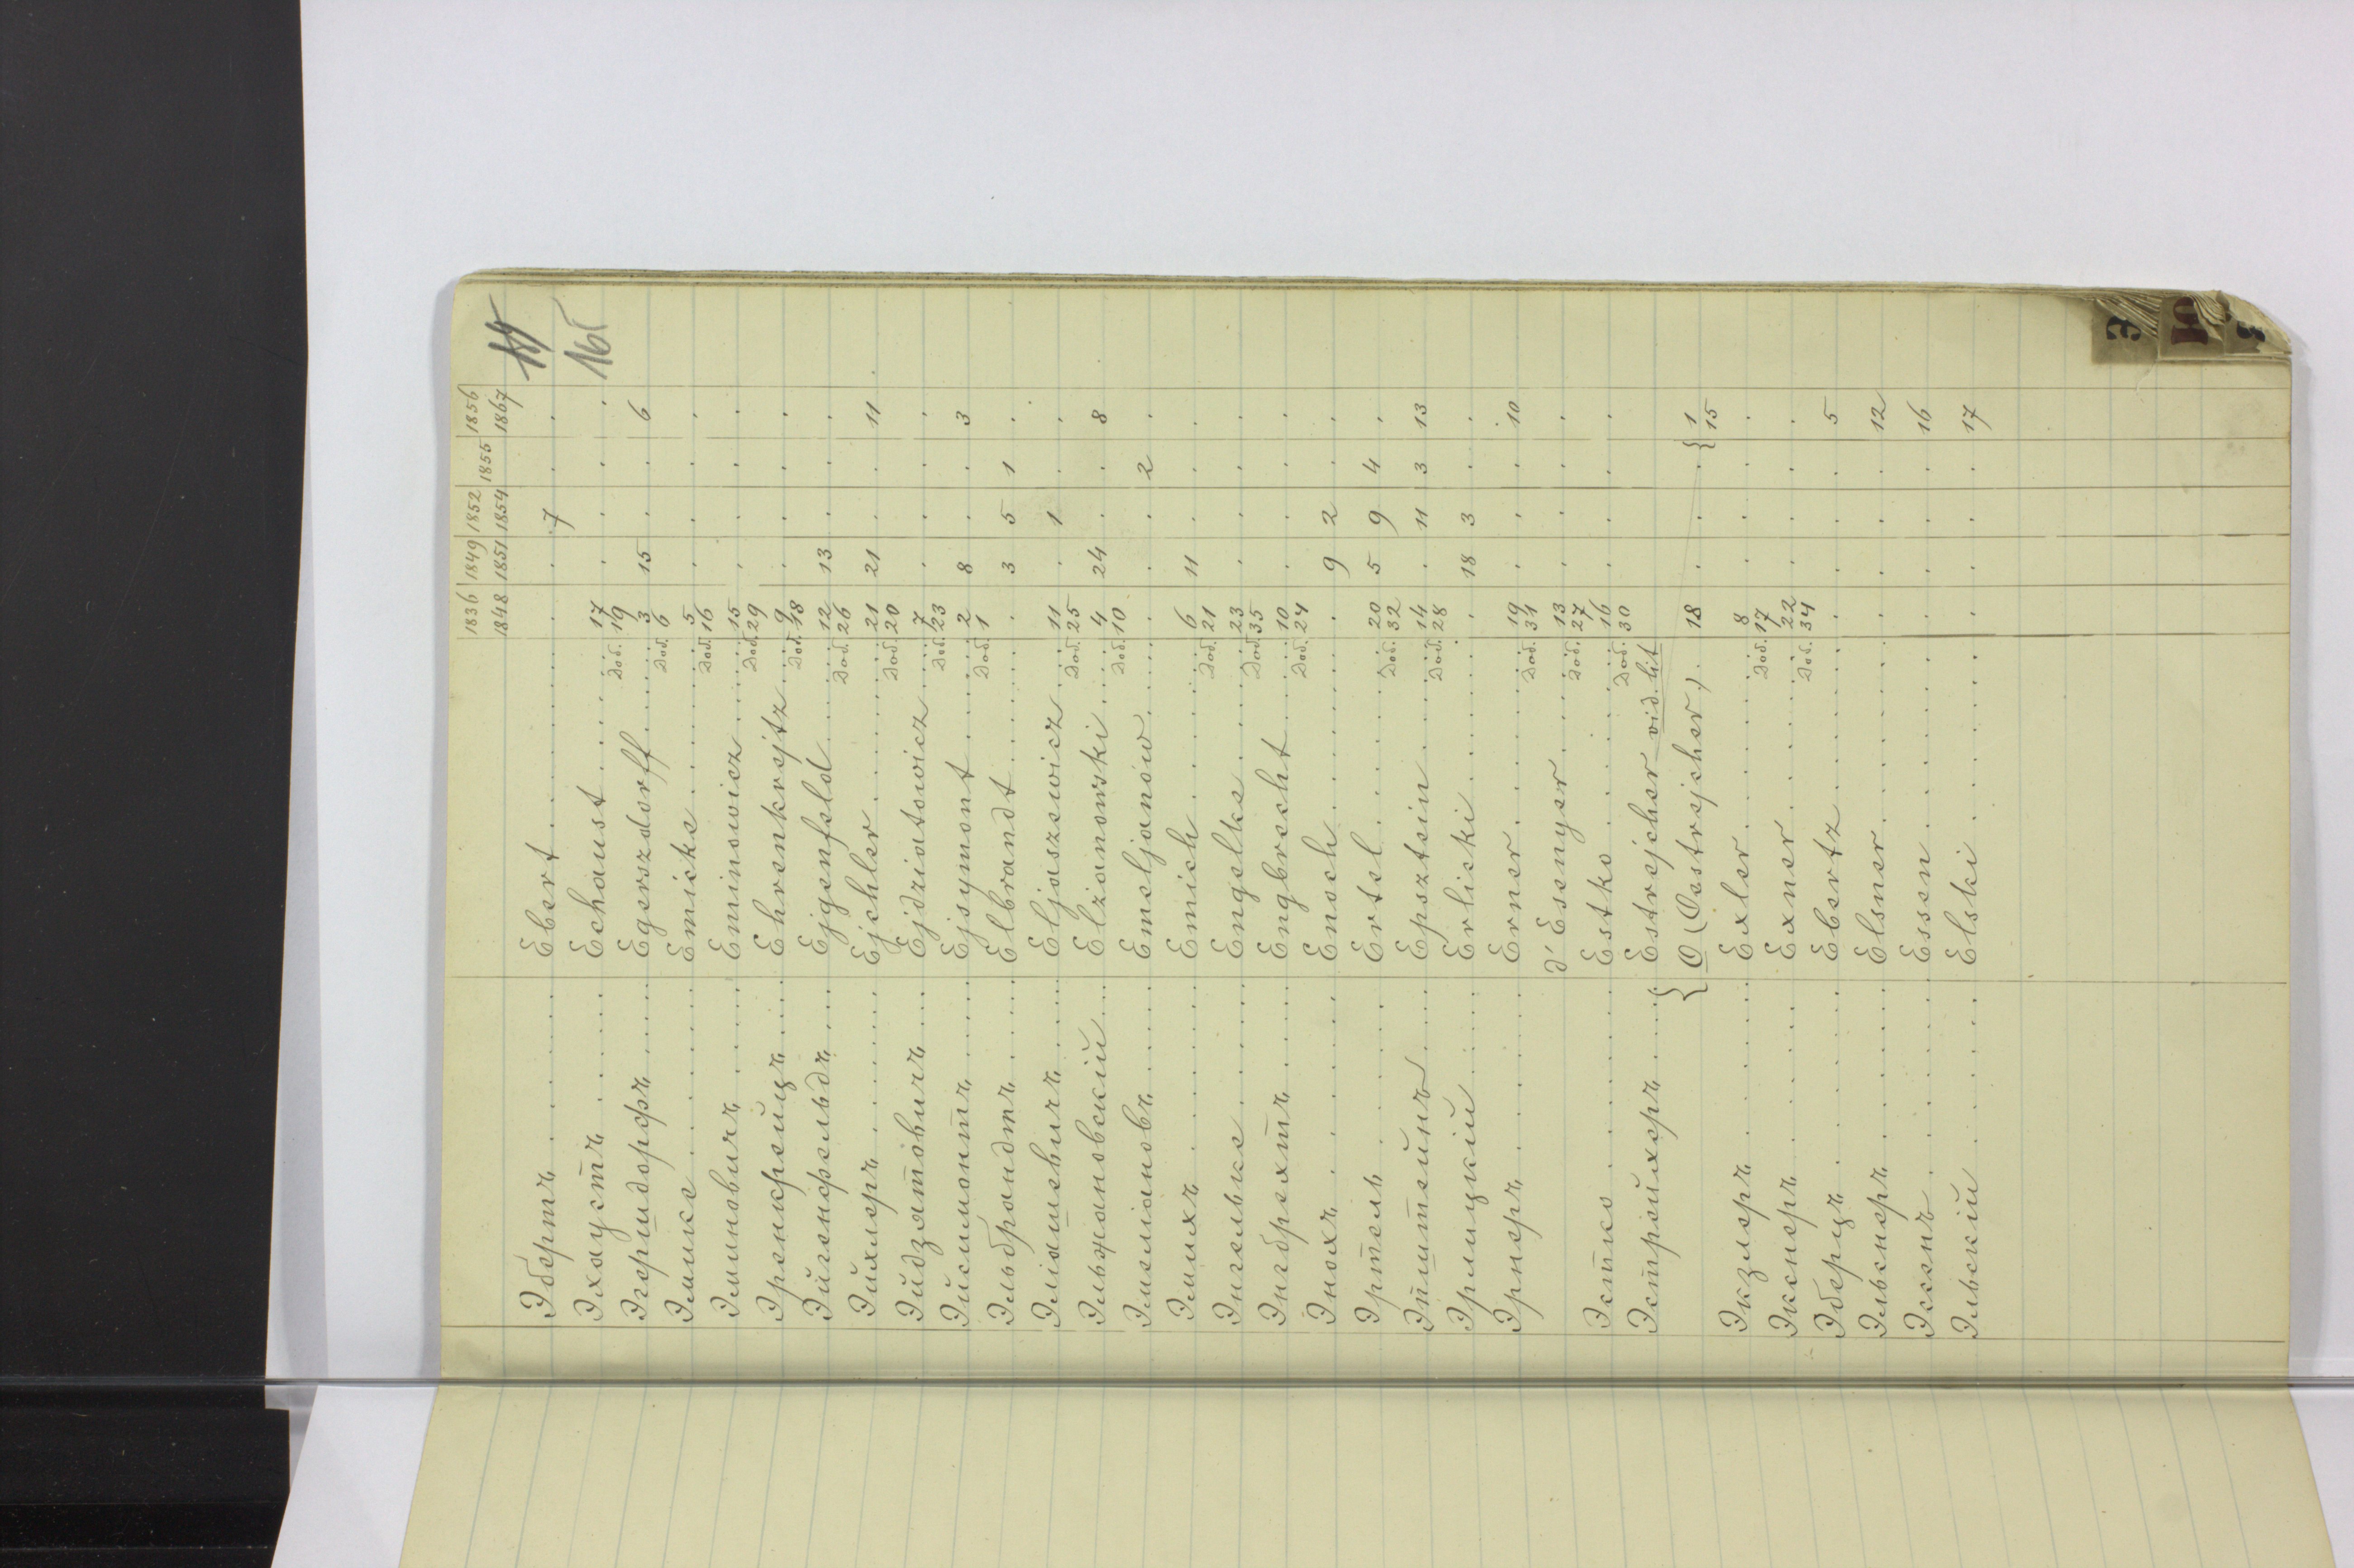 1836 1849 1852 1855 1856
1848 1851 1854 1867
161
Эбертъ Ebert . . 7 . .
Эхаустъ Echaust 17 . . . .
Dod. 19
Эгерсшдорфъ Egerszdorff 3 15 . . 6
Dod. 6
Эмике Emicke 5 . . . .
Dod. 16
Эминовичъ Eminowicz 15 . . . .
Dod. 29
Эренкрейцъ Ehrenkrejtz 9 . . . .
Dod. 18
Эйгенфельдъ Ejgenfeld 12 13 . . .
Dod. 26
Эйхлеръ Ejchler 21 21 . . 11
Dod. 20
Эйдзятовичъ Ejdziatowicz 7 . . . .
Dod. 23
Эйсимонтъ Ejsymont 2 8 . . 3
Dod. 1
Эльбрандтъ Elbrandt . 3 5 1 .
Эліашевичъ Eljaszewicz 11 . 1 . .
Dod. 25
Эльжановскій Elżanowski 4 24 . . 8
Dod. 10
Эмеліановъ Emeljanów . . . 2 .
Эмихъ Emich 6 11 . . .
Dod. 21
Энгельке Engelke 23 . . . .
Dod. 35
Энгбрехтъ Engbrecht 10 . . . .
Dod. 24
Энохъ Enoch . 9 2 . .
Эртель Ertel 20 5 9 4 .
Dod. 32
Эпштейнъ Epsztein 14 . 11 3 13
Dod. 28
Эрлицкій Erlicki . 18 3 . .
Эрнеръ Erner 19 . . . 10
Dod. 31
d'Esenyer 13 . . . .
Dod. 27
Эстко Estko 16 . . . .
Dod. 30
Эстрейхеръ { Estrejcher vid. lit
O (Oestrejcher) 18 . . . { 1
15
Экзлеръ Exler 8 . . . .
Dod. 17
Экснеръ Exner 22 . . . .
Dod. 34
Эберцъ Ebertz . . . . 5
Эльснеръ Elsner . . . . 12
Эссенъ Essen . . . . 16
Эльскій Elski . . . . 17
Э
Ю